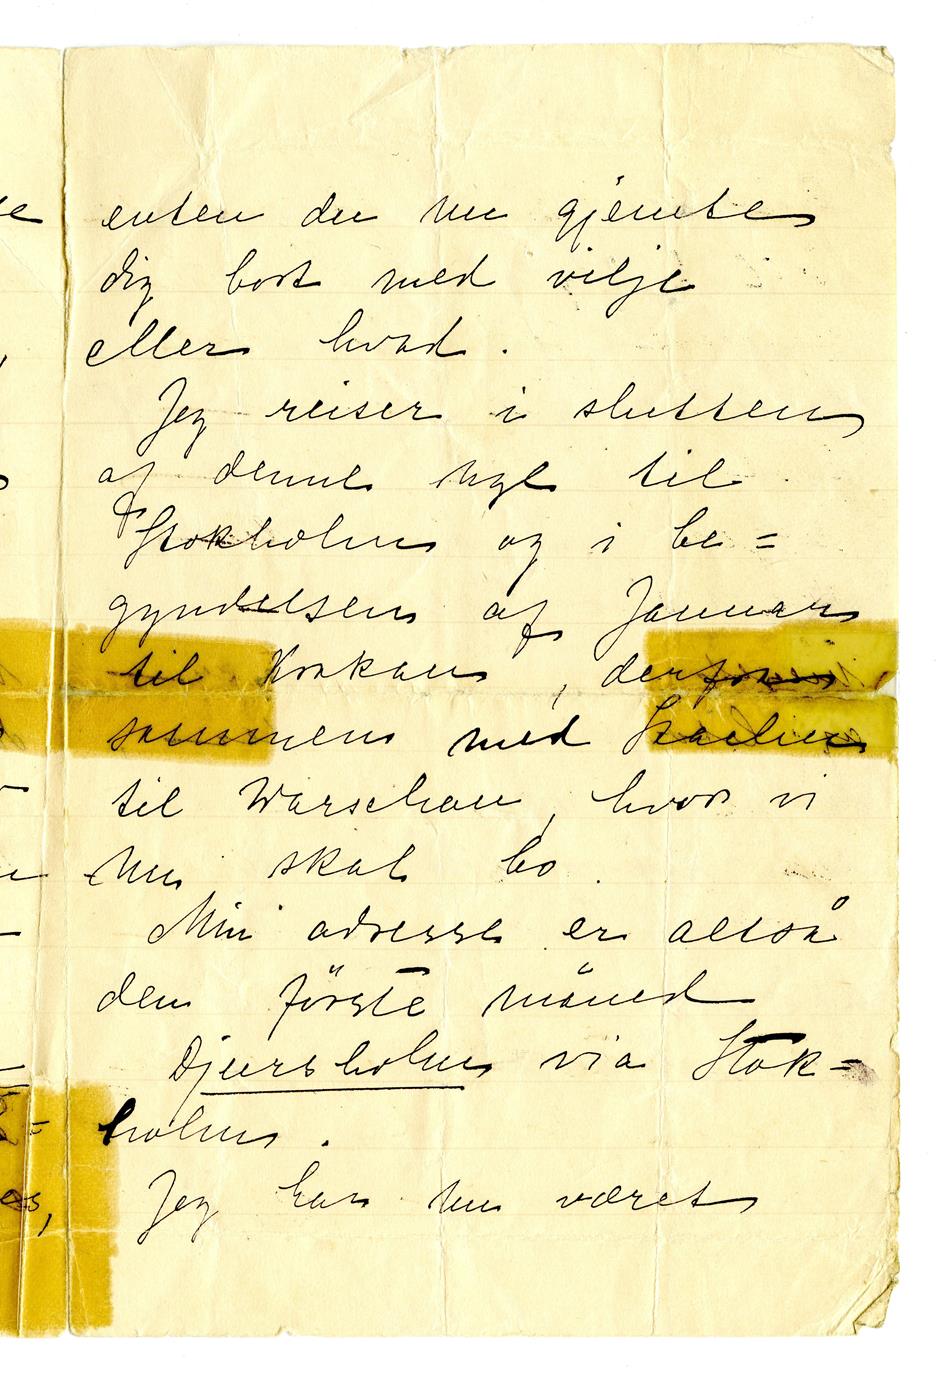 enten du nu gjemte
dig bort med vilje
eller hvad.
Jeg reiser i slutten
af denne uge til
Stokholm og i be=
gyndelsen af Januar
til Krakau, derfra
sammen med Stachu
til Warschau, hvor vi
nu skal bo.
Min adresse er altså
den förste måned
Djursholm via Stok=
holm.
Jeg har nu været